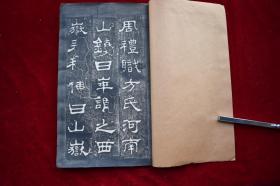 周禮職方氏河南
山鎮曰華謂之西
嶽春秋傳曰山嶽